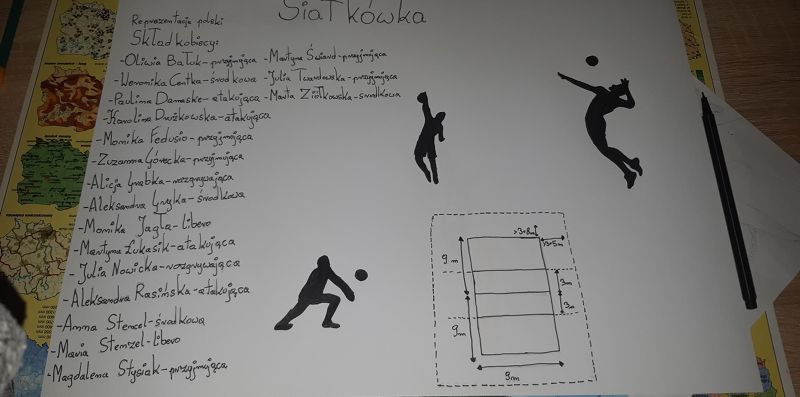 Siatkówka
Reprezentacja polski
Skład kobiecy:
-Oliwia Bałuk-przyjmująca -Martyna Świrad-przyjmująca
-Weronika Centka-środkowa -Julia Twardowska-przyjmująca
-Paulina Damaske-atakująca -Marta Ziółkowska-środkowa
-Karolina Drużkowska-atakująca
-Monika Fedusio-przyjmująca
-Zuzanna Górecka-przyjmująca
-Alicja Grabka-rozgrywająca
-Aleksandra Gryka-środkowa
-Monika Jagła-libero
-Martyna Łukasik-atakująca
-Julia Nowicka-rozgrywająca
-Aleksandra Rasińska-atakująca
-Anna Stencel-środkowa
-Maria Stenzel-libero
-Magdalena Stysiak-przyjmująca
9m
3m
3m
9m
9m